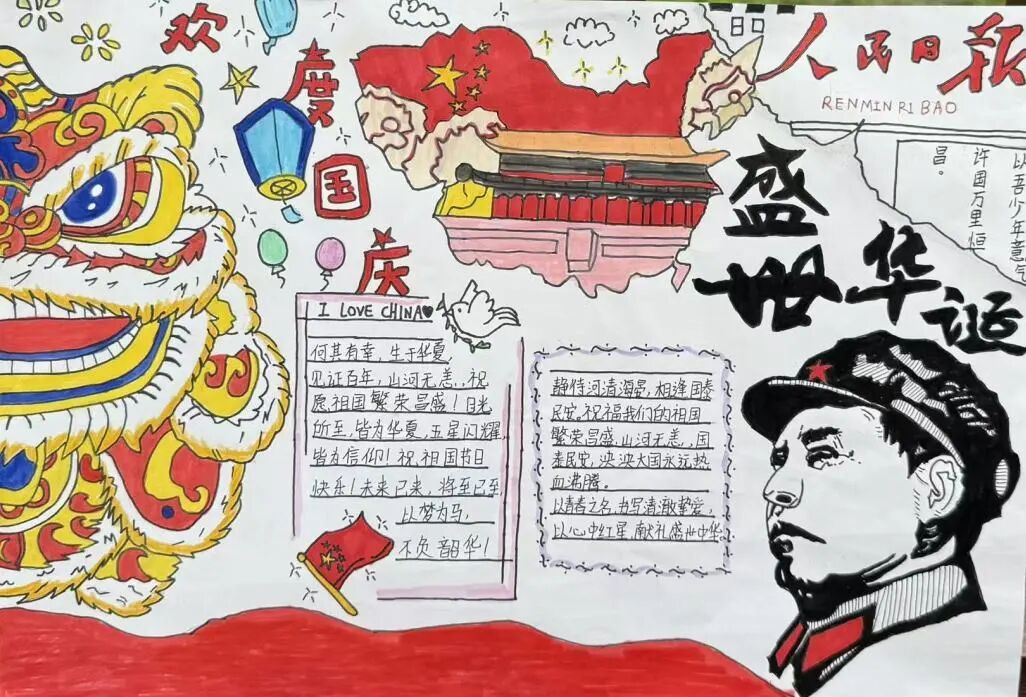 欢度国庆
人民日报
RENMIN RI BAO
以吾少年意气
许国万里恒
昌。
盛世华诞
I LOVE CHINA
何其有幸，生于华夏
见证百年，山河无恙，祝
愿祖国繁荣昌盛！目光
所至，皆为华夏，五星闪耀，
皆为信仰！祝祖国节日
快乐！未来已来，将至已至
以梦为马，
不负韶华！
静待河清海晏，相逢国泰
民安。祝福我们的祖国
繁荣昌盛，山河无恙，国
泰民安，泱泱大国永远热
血沸腾。
以青春之名，书写清澈挚爱，
以心中红星，献礼盛世中华